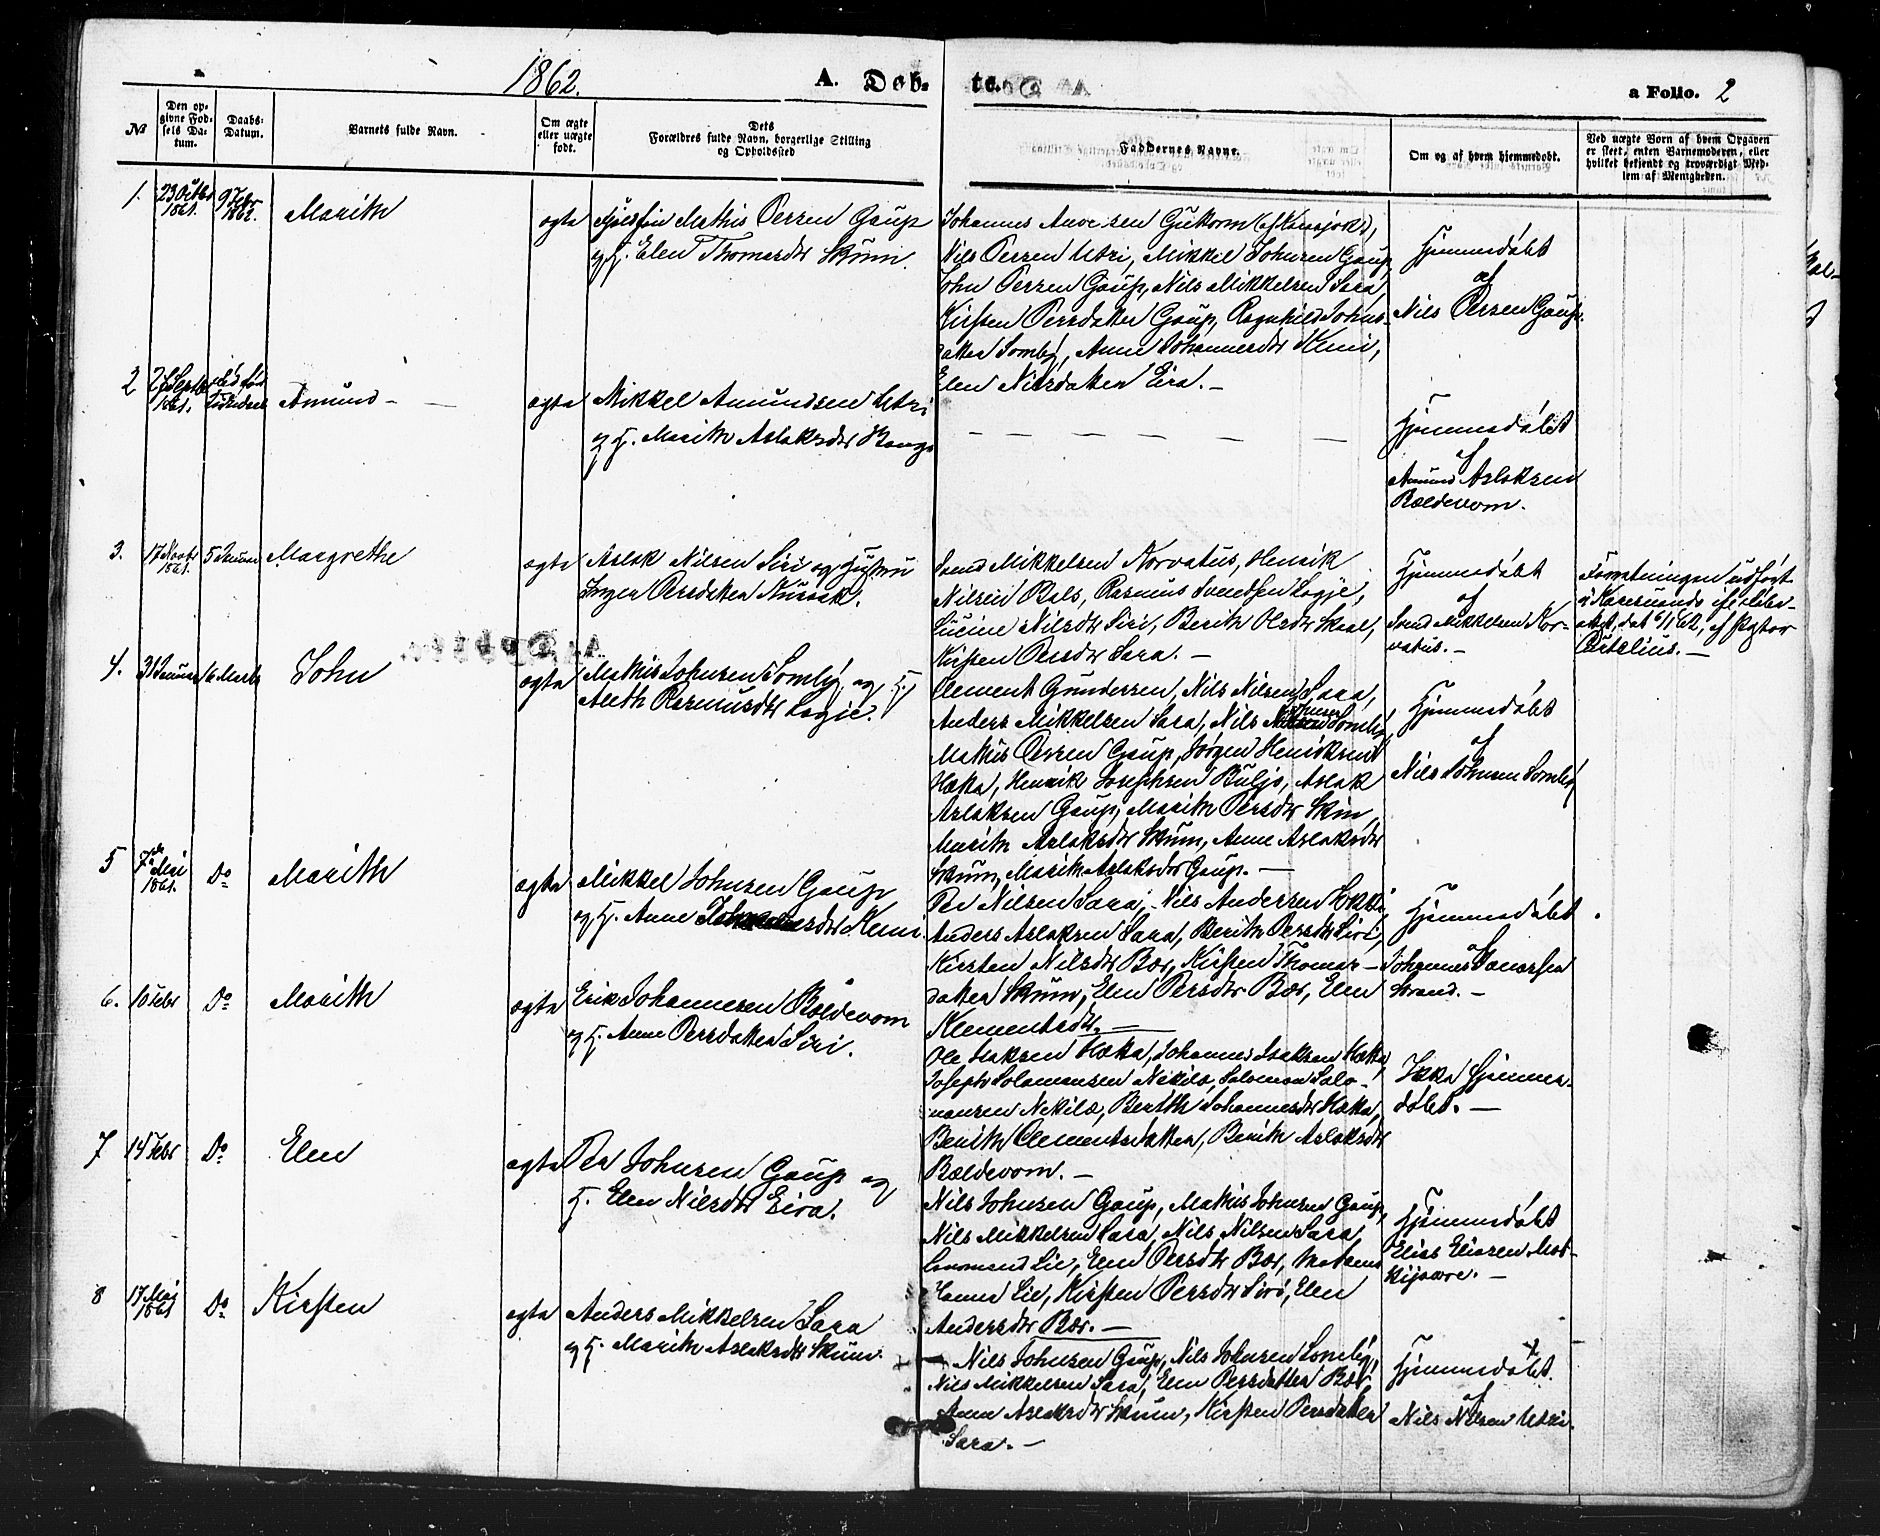 1862.
A. Døb-
te.
a Folio. 2
№
Den op-
givne Fød-
sels Da-
tum.
Daabs-
Datum.
Barnets fulde Navn.
Om ægte
eller uægte
født.
Dets
Forældres fulde Navn, borgerlige Stilling
og Opholdssted
Faddernes Navne.
Om og af hvem hjemmedøbt.
Ved uægte Børn af hvem Opgaven
er skeet, enten Barnemoderen, eller
hvilket bekjendt og troværdigt Med-
lem af Menigheden.
1.
23 Octbr
1861.
9 Febr
1862.
Marith
ægte
Fjeldfin Mathis Persen Gaup
og H. Elen Thomasdtr Skum.
Johannes Guttorm (af Karasjok),
Nils Persen Utsi, Mikkel Johnsen Gaup,
John Persen Gaup, Nils Mikkelsen Sara,
Kirsten Persdatter Gaup, Ragnhild Johns-
datter Somby, Anne Johannesdtr Kemi,
Elen Nilsdatter Eira. —
Hjemmedøbt
af
Nils Persen Gaup.
2
Septbr
1861.
Amund —
ægte
Mikkel Amundsen Utsi
og H. Marith Aslaksdtr Bongo
— — — — —
Hjemmedøbt
af
Amund Aslaksen
Bældevom.
3.
17 Novbr
1861.
5 Januar
Margrethe
ægte
Aslak Nilsen Siri og Hustru
Inger Persdatter Nusak.
Svend Mikkelsen Norvatus, Henrik
Nilsen Bals, Rasmus Svendsen Logje,
Lucine Nilsdtr Siri, Berith Olsdtr Skaal,
Kirsten Persdtr Sara. —
Hjemmedøbt
af
Svend Mikkelsen Nor-
vatus. —
Forretningen udført
i Karesuando ifølge
attest, dat 6/1 62, af Pastor
4.
31 Januar
6 Marts
John
ægte
Mathis Johnsen Somby og H.
Aleth Rasmusdtr Logje.
Clement Gundersen, Nils Nilsen Sara,
Anders Mikkelsen Sara, Nils Johnsen Somby,
Mathis Persen Gaup, Jørgen Henriksen
Hætta, Henrik Josephsen Buljo, Aslak
Aslaksen Gaup, Marith Persdtr Skum
Marith Aslaksdtr Skum, Anne Aslaksdtr
Skum, Marith Aslaksdtr Gaup. —
Hjemmedøbt
af
Nils Johnsen Somby
5
7de Mai
1861.
Do
Marith
ægte
Mikkel Johnsen Gaup
og H. Anne Johannesdtr Kemi.
Per Nilsen Sara, Nils Andersen Hætta
Anders Aslaksen Sara, Berith Persdtr Siri,
Kirsten Nilsdtr Bær, Kirsten Thomas-
datter Skum, Elen Persdtr Bær, Elen
Klementsdtr. —
Hjemmedøbt
af
Johannes
Strand. —
6.
10 Febr
Do
Marith
ægte
Erik Johannesen Bældevom
og H. Anne Persdatter Siri.
Ole Isaksen Hætta, Johannes Isaksen Hætta,
Joseph Solomonsen Nekilæ, Salomon Salo-
monsen Nekilæ, Berith Johannesdtr Hætta,
Berith Clementsdatter, Berith Aslaksdtr
Bældevom. —
Ikke hjemme-
døbt. —
7
14 Febr
Do
Elen
ægte
Per Johnsen Gaup og
H. Elen Nilsdtr Eira.
Nils Johnsen Gaup, Mathis Johnsen Gaup,
Nils Mikkelsen Sara, Nils Nilsen Sara,
Lensmand Lie, Elen Persdtr Bær, Madame
Hanna Lie, Kirsten Persdtr Siri, Elen
Andersdtr Bær. —
Hjemmedøbt
Elias Eliasen
8
17 Mai
1861
Do
Kirsten
ægte
Anders Mikkelsen Sara
og H. Marith Aslaksdtr Skum.
— Nils Johnsen Gaup, Nils Johnsen Somby,
Nils Mikkelsen Sara, Elen Persdatter Bær
Anne Aslaksdtr Skum, Kirsten Persdatter
Sara. —
Hjemmedøbt.
af
Nils Nilsen Utsi.